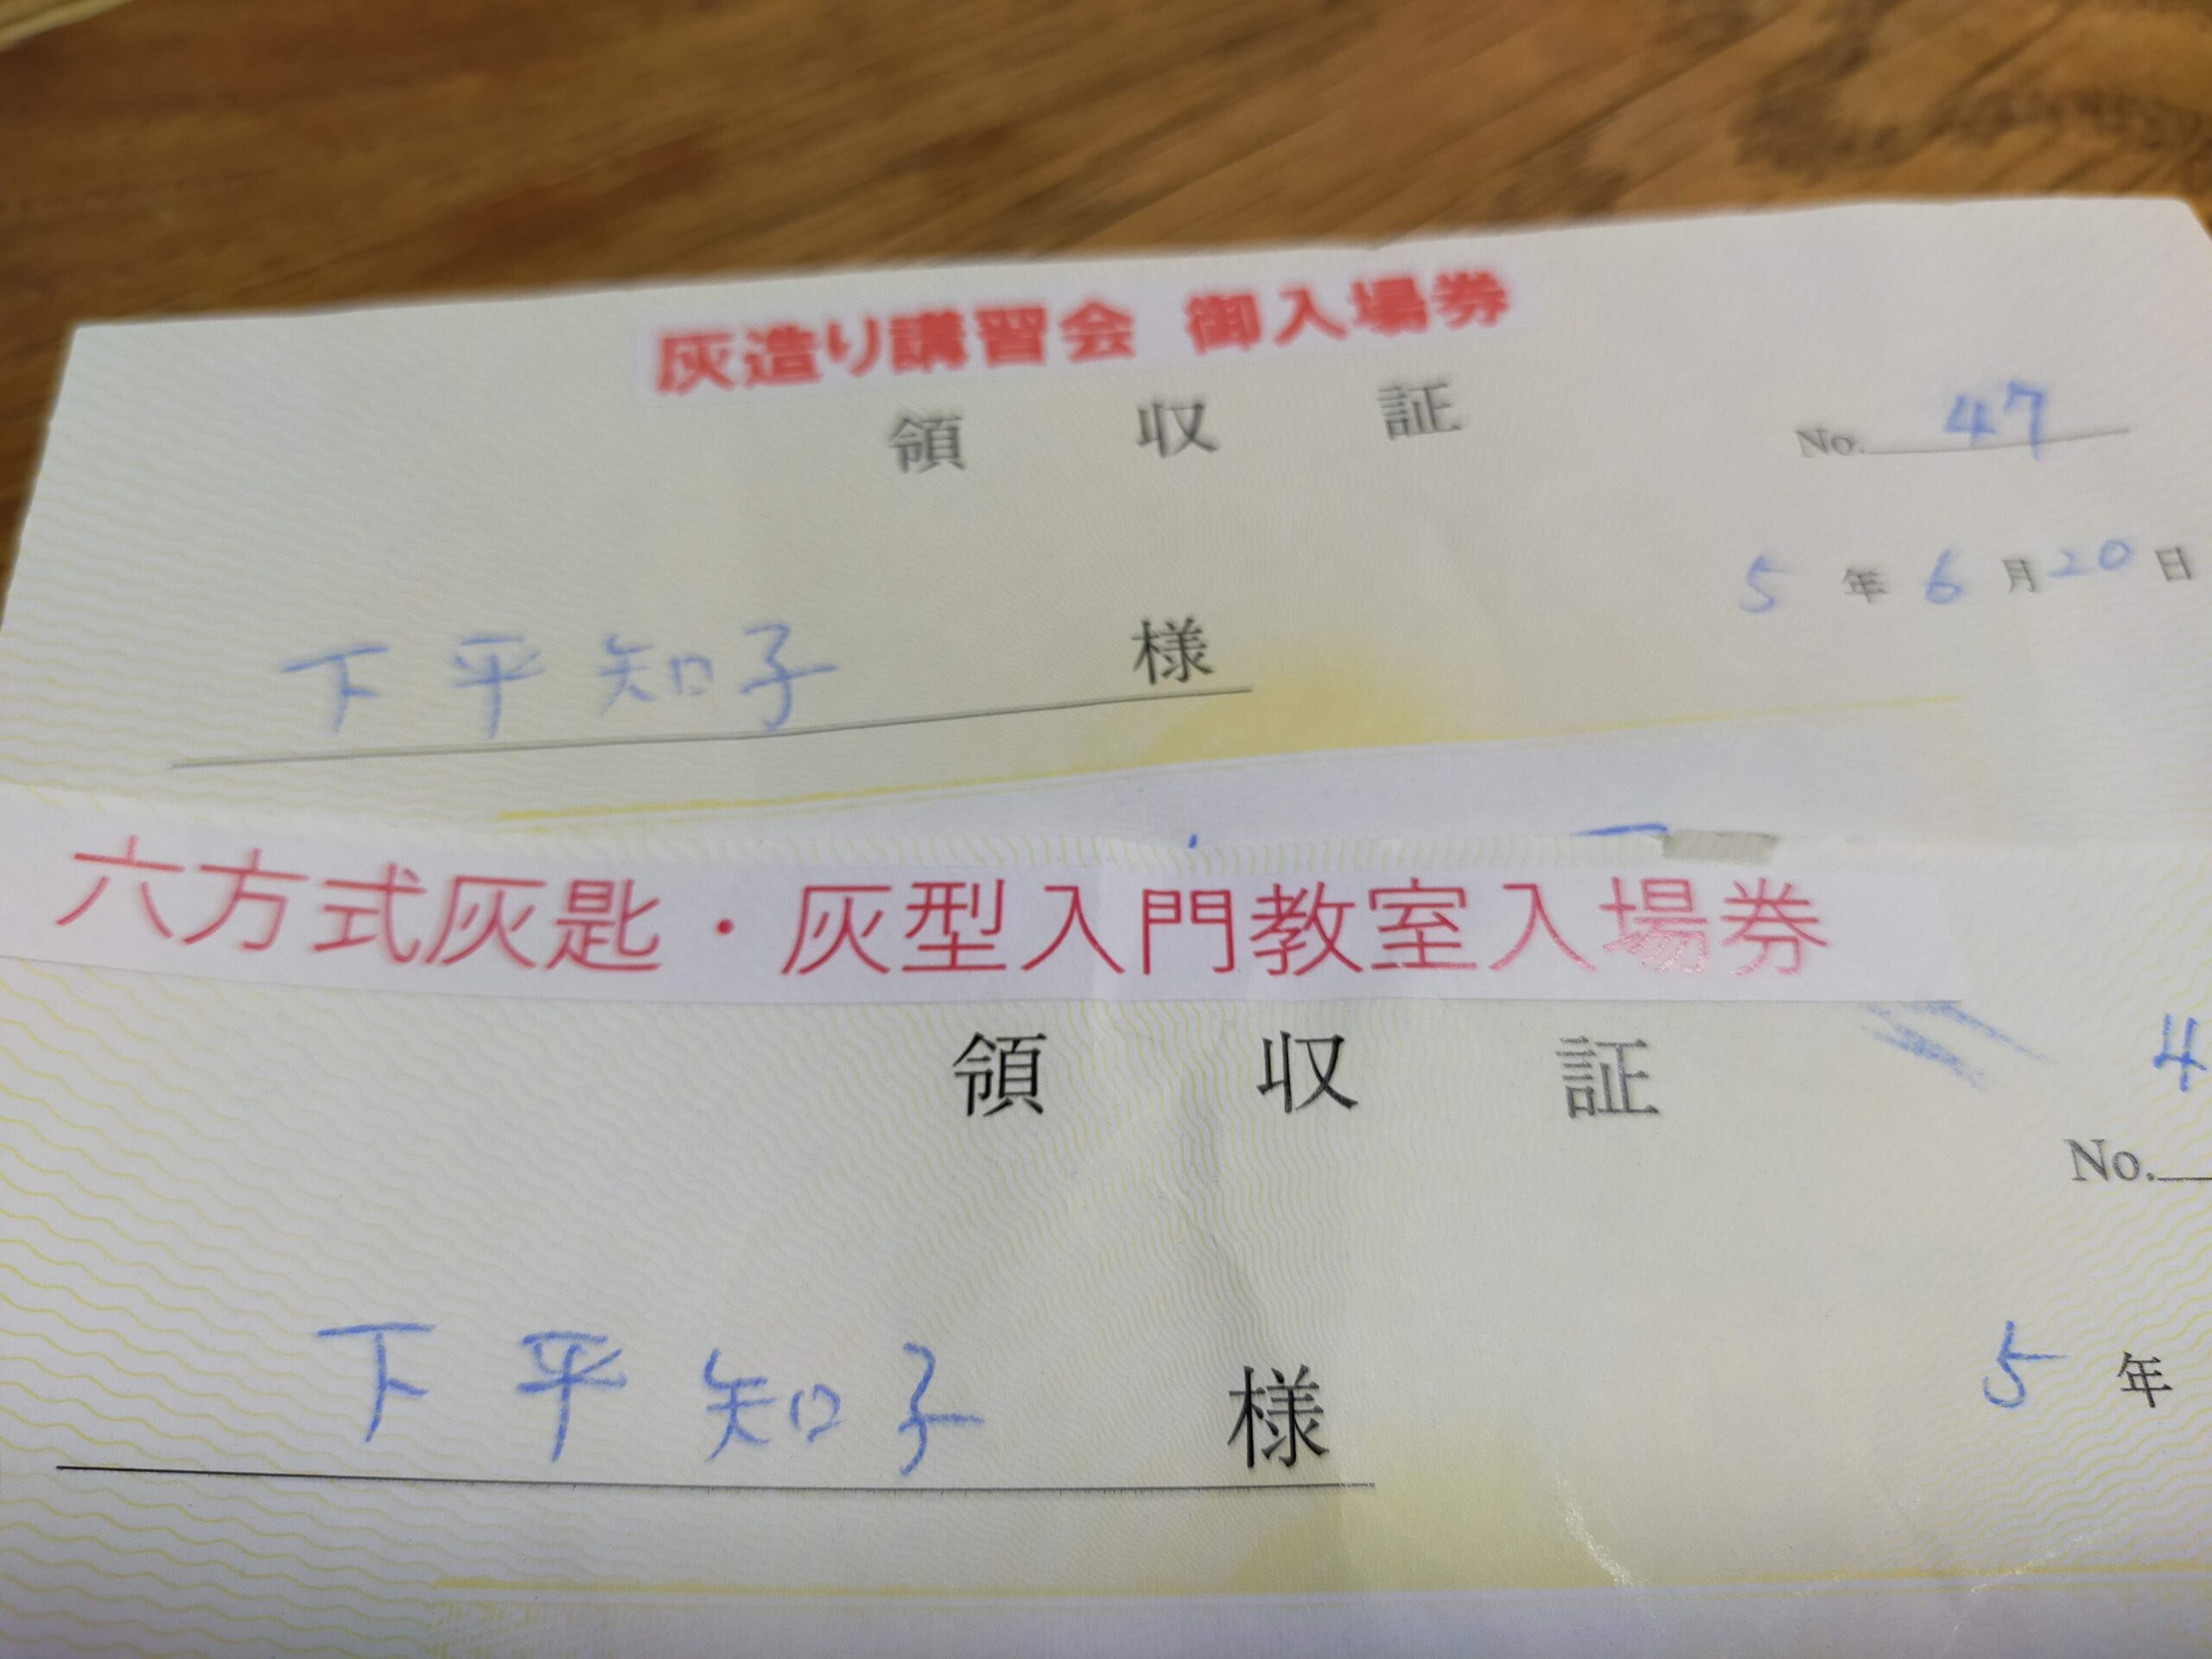 灰造り講習会 御入場券
領 収 証
No. 47
5 年 6 月 20 日
下平知子 様
六方式灰匙・灰型入門教室入場券
領 収 証
4
No.
下平知子 様
5 年